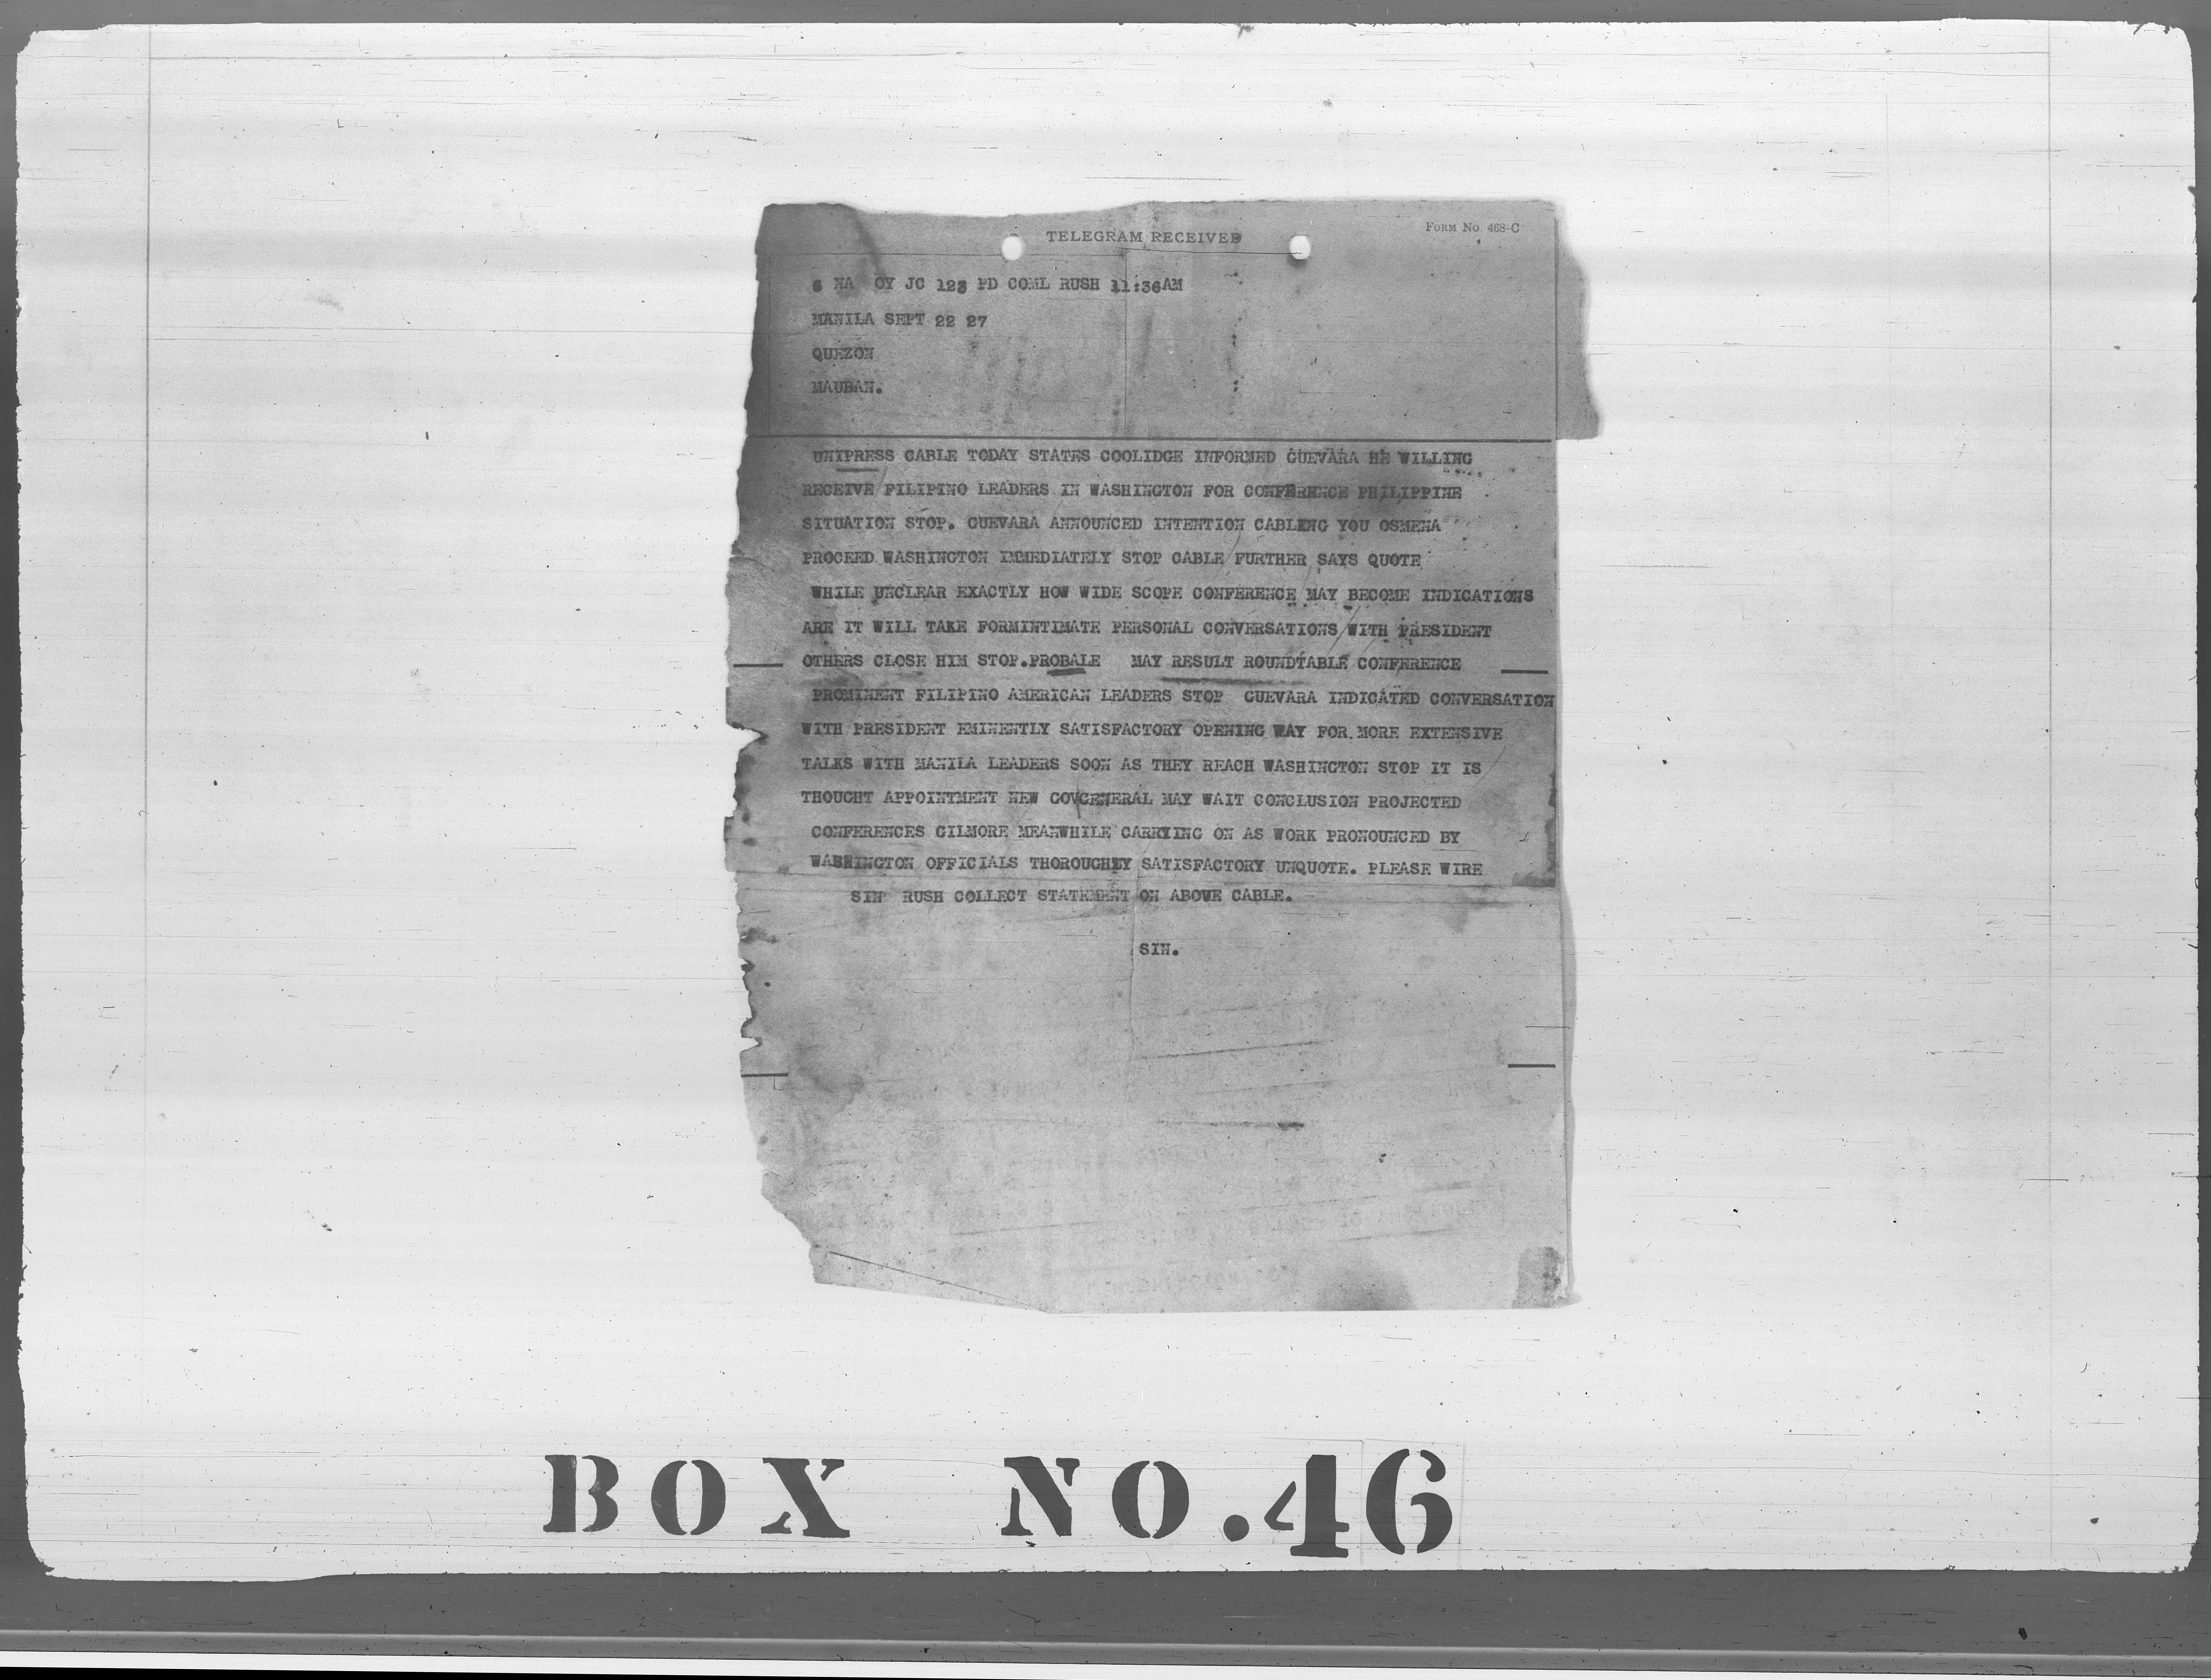 TELEGRAM RECEIVED
FORM NO. 468-C
OY JC 123 PD COML RUSH 11:36AM
MANILA SEPT 22 27
QUEZON
MAUBAN.
UNIPRESS CABLE TODAY STATES COOLIDGE INFORMED GUEVARA HE WILLING
RECEIVE FILIPINO LEADERS IN WASHINGTON FOR CONFERENCE PHILIPPINE
SITUATION STOP. GUEVARA ANNOUNCED INTENTION CABLING YOU OSMENA
PROCEED WASHINGTON IMMEDIATELY STOP CABLE FURTHER SAYS QUOTE
WHILE UNCLEAR EXACTLY HOW WIDE SCOPE CONFERENCE MAY BECOME INDICATIONS
ARE IT WILL TAKE FORMINTIMATE PERSONAL CONVERSATIONS WITH PRESIDENT
OTHERS CLOSE HIM STOP.PROBALE MAY RESULT ROUNDTABLE CONFERENCE
PROMINENT FILIPINO AMERICAN LEADERS STOP GUEVARA INDICATED CONVERSATION
WITH PRESIDENT EMINENTLY SATISFACTORY OPENING WAY FOR MORE EXTENSIVE
TALKS WITH MANILA LEADERS SOON AS THEY REACH WASHINGTON STOP IT IS
THOUGHT APPOINTMENT NEW GOVGENERAL MAY WAIT CONCLUSION PROJECTED
CONFERENCES GILMORE MEANWHILE CARRYING ON AS WORK PRONOUNCED BY
WASHINGTON OFFICIALS THOROUGHLY SATISFACTORY UNQUOTE. PLEASE WIRE
SIN RUSH COLLECT STATEMENT ON ABOVE CABLE.
SIN.
BOX NO.46